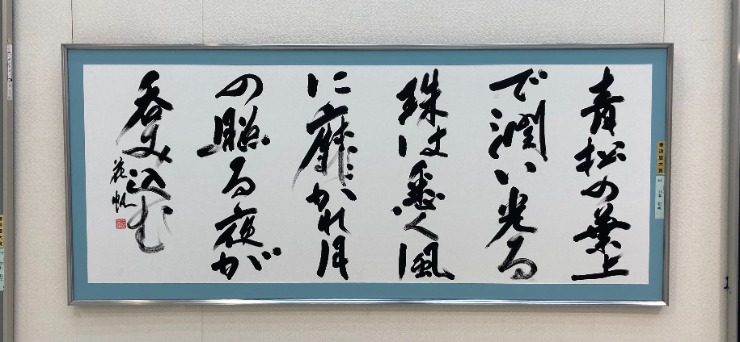 青松の葉上
で潤い光る
珠は悉く風
に靡かれ月
の照る夜が
呑み込む